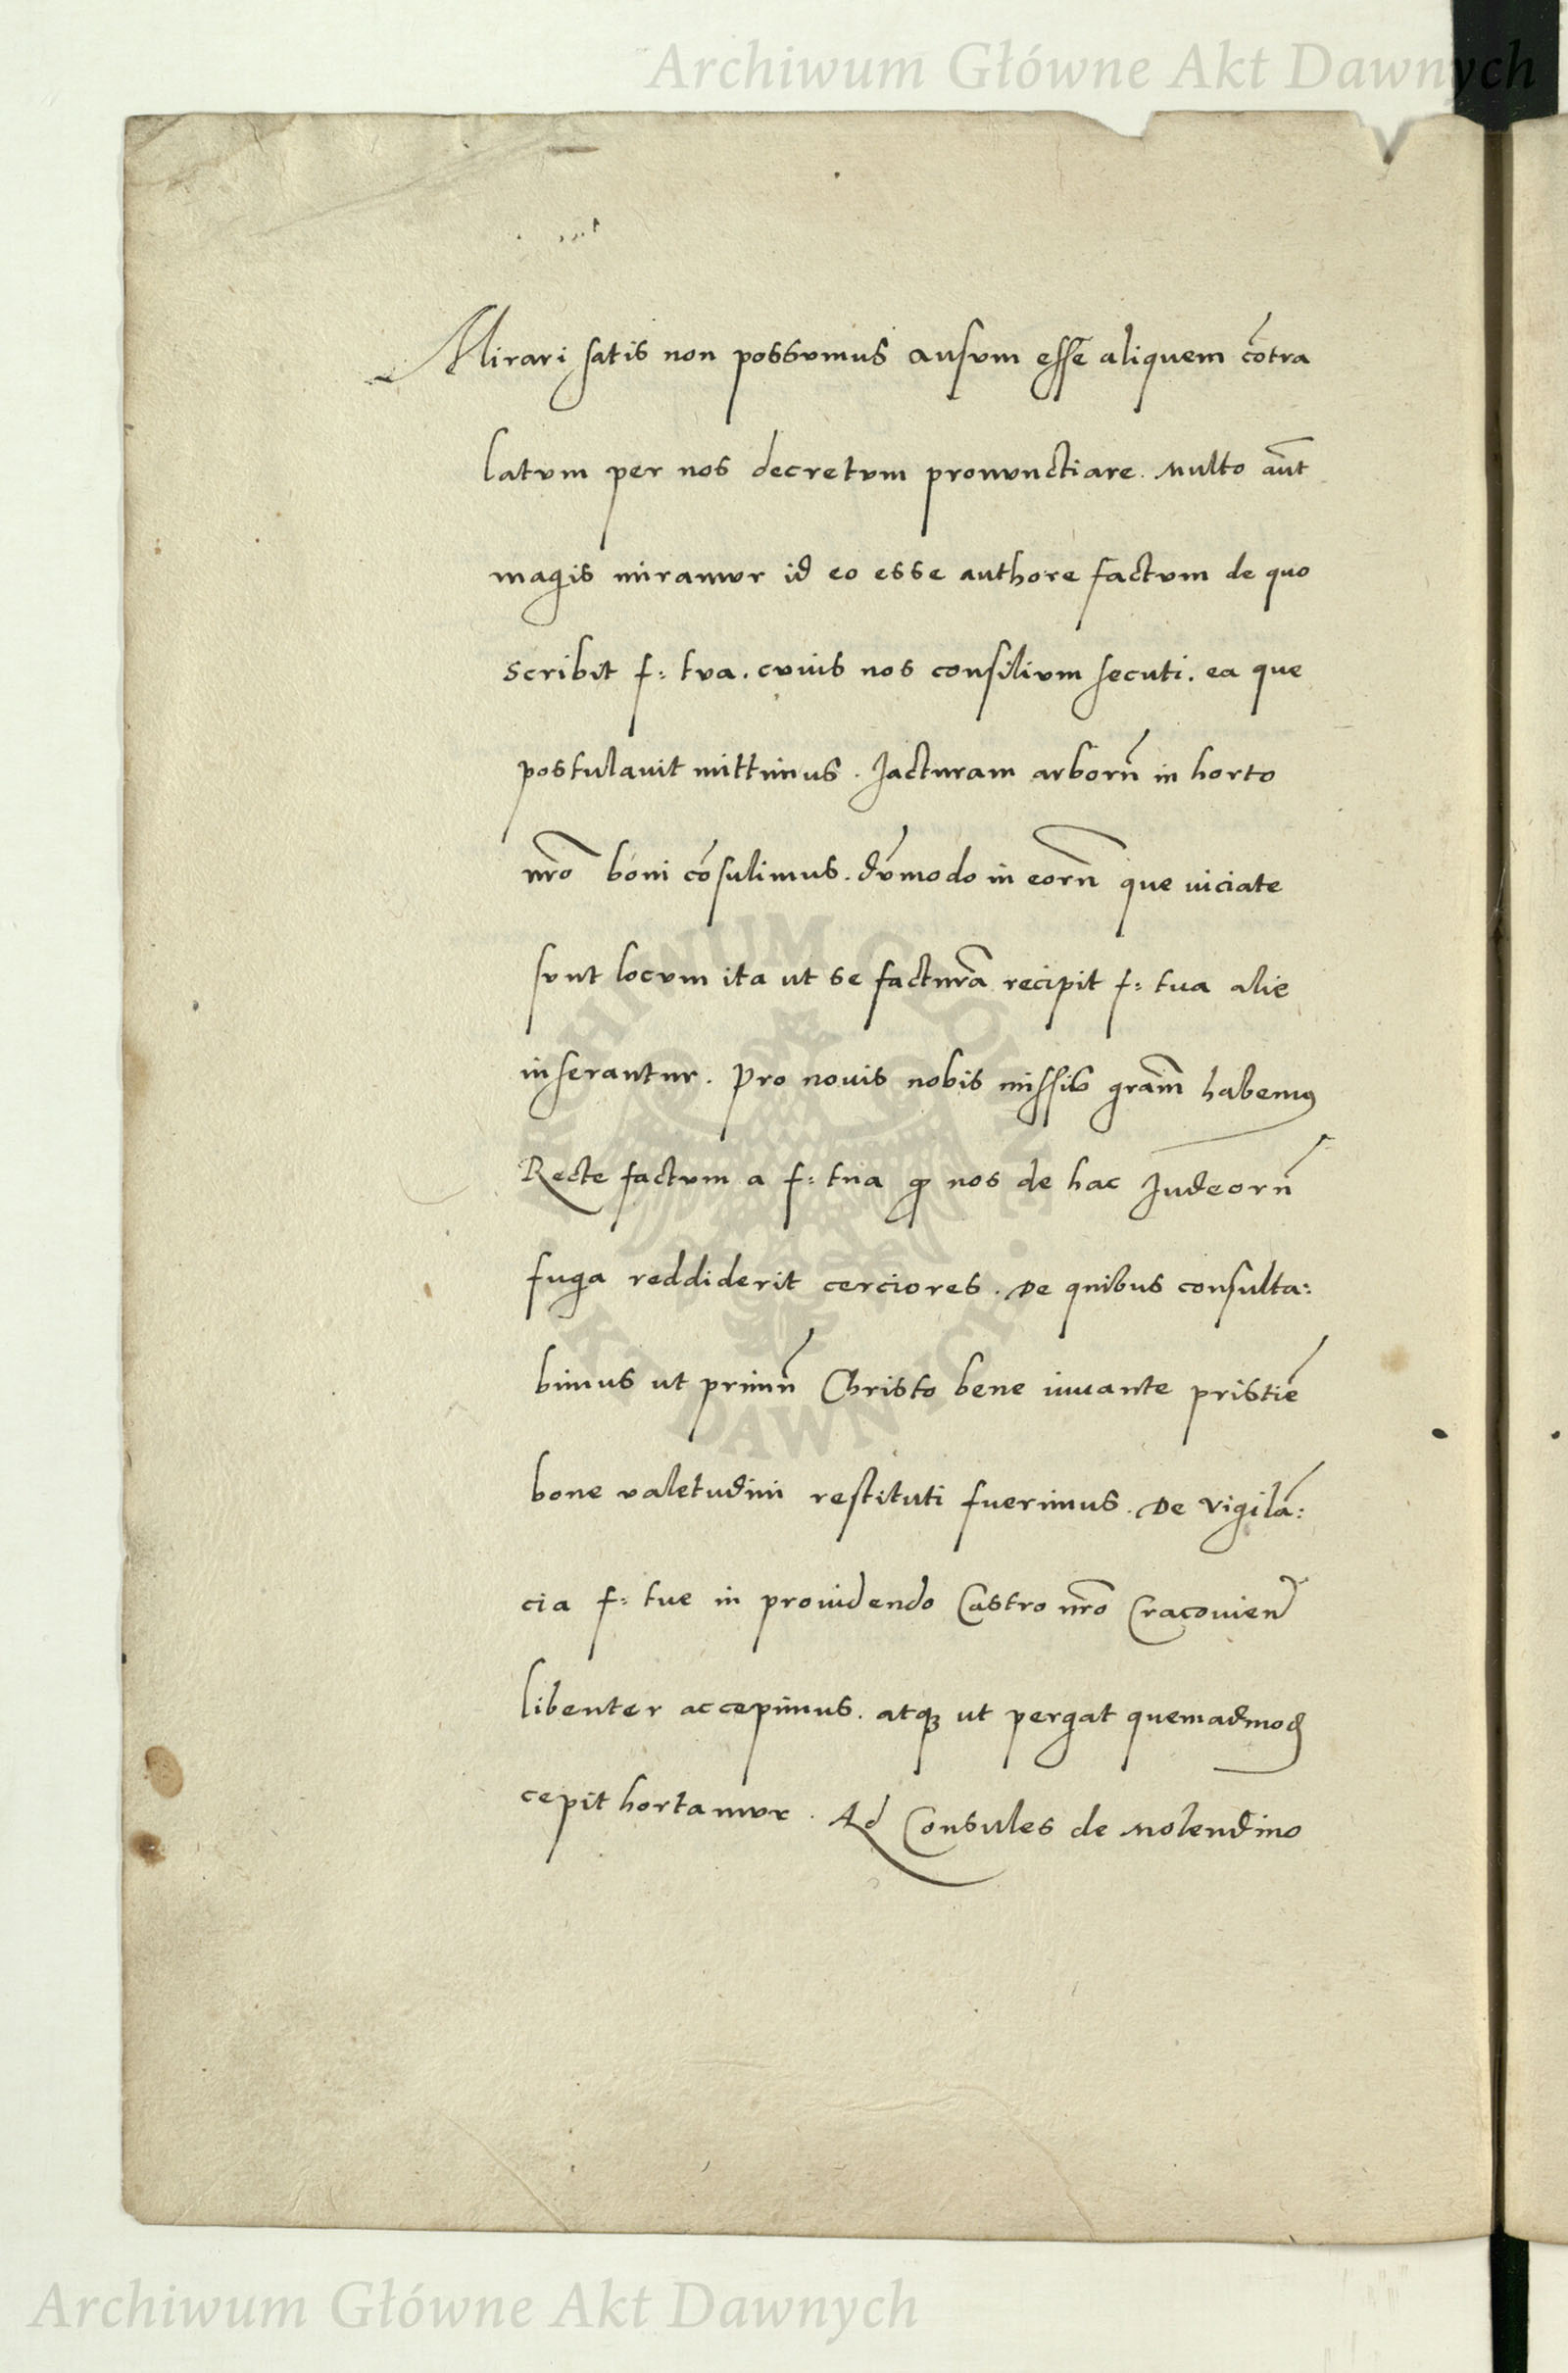 Archiwum Główne Akt Dawnych
Mirari satis non possumus ausum esse aliquem cōtra
latum per nos decretum pronunctiare. Multo aūt
magis miramur id eo esse authore factum de quo
scribit f: tua. cuius nos consilium secuti. ea que
postulauit mittimus. Jacturam arborū in horto
nr̄o boni cōsulimus. dūmodo in eorū que uiciate
sunt locum ita ut se facturā recipit f: tua alie
inserantur. Pro nouis nobis missis grām habemꝰ
Recte factum a f: tua ꝙ nos de hac Judeorū
fuga reddiderit cerciores. De quibus consulta:
bimus ut primū Christo bene iuuante pristiē
bone valetudini restituti fuerimus. De vigilā:
cia f: tue in prouidendo Castro nr̄o Cracouien̄
libenter accepimus. atqꝫ ut pergat quemadmod̄
cepit hortamur. Ad Consules de Molendino
ARCHIWUM GŁÓWNE
AKT DAWNYCH
Archiwum Główne Akt Dawnych